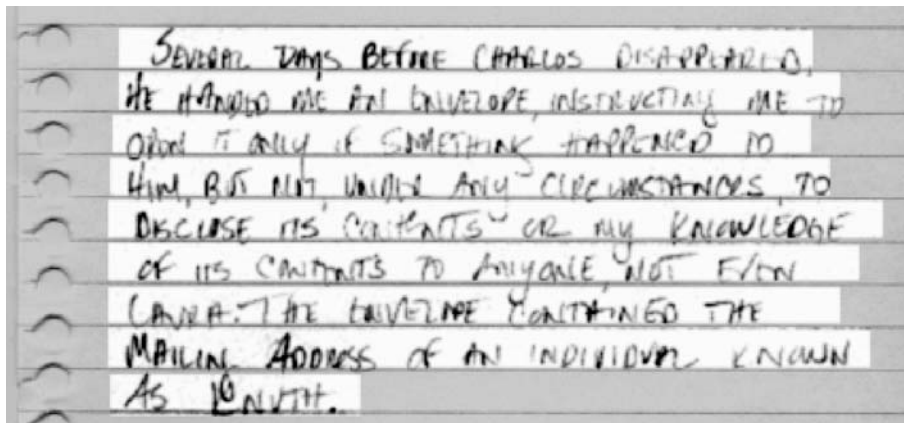 SEVERAL DAYS BEFORE CHARLOS DISAPPEARED,
HE HANDED ME AN ENVELOPE, INSTRUCTING ME TO
OPEN IT ONLY IF SOMETHING HAPPENED TO
HIM, BUT NOT, UNDER ANY CIRCUMSTANCES, TO
DISCLOSE ITS CONTENTS OR MY KNOWLEDGE
OF ITS CONTENTS TO ANYONE, NOT EVEN
LAURA. THE ENVELOPE CONTAINED THE
MAILIN ADDRESS OF AN INDIVIDUAL KNOWN
AS